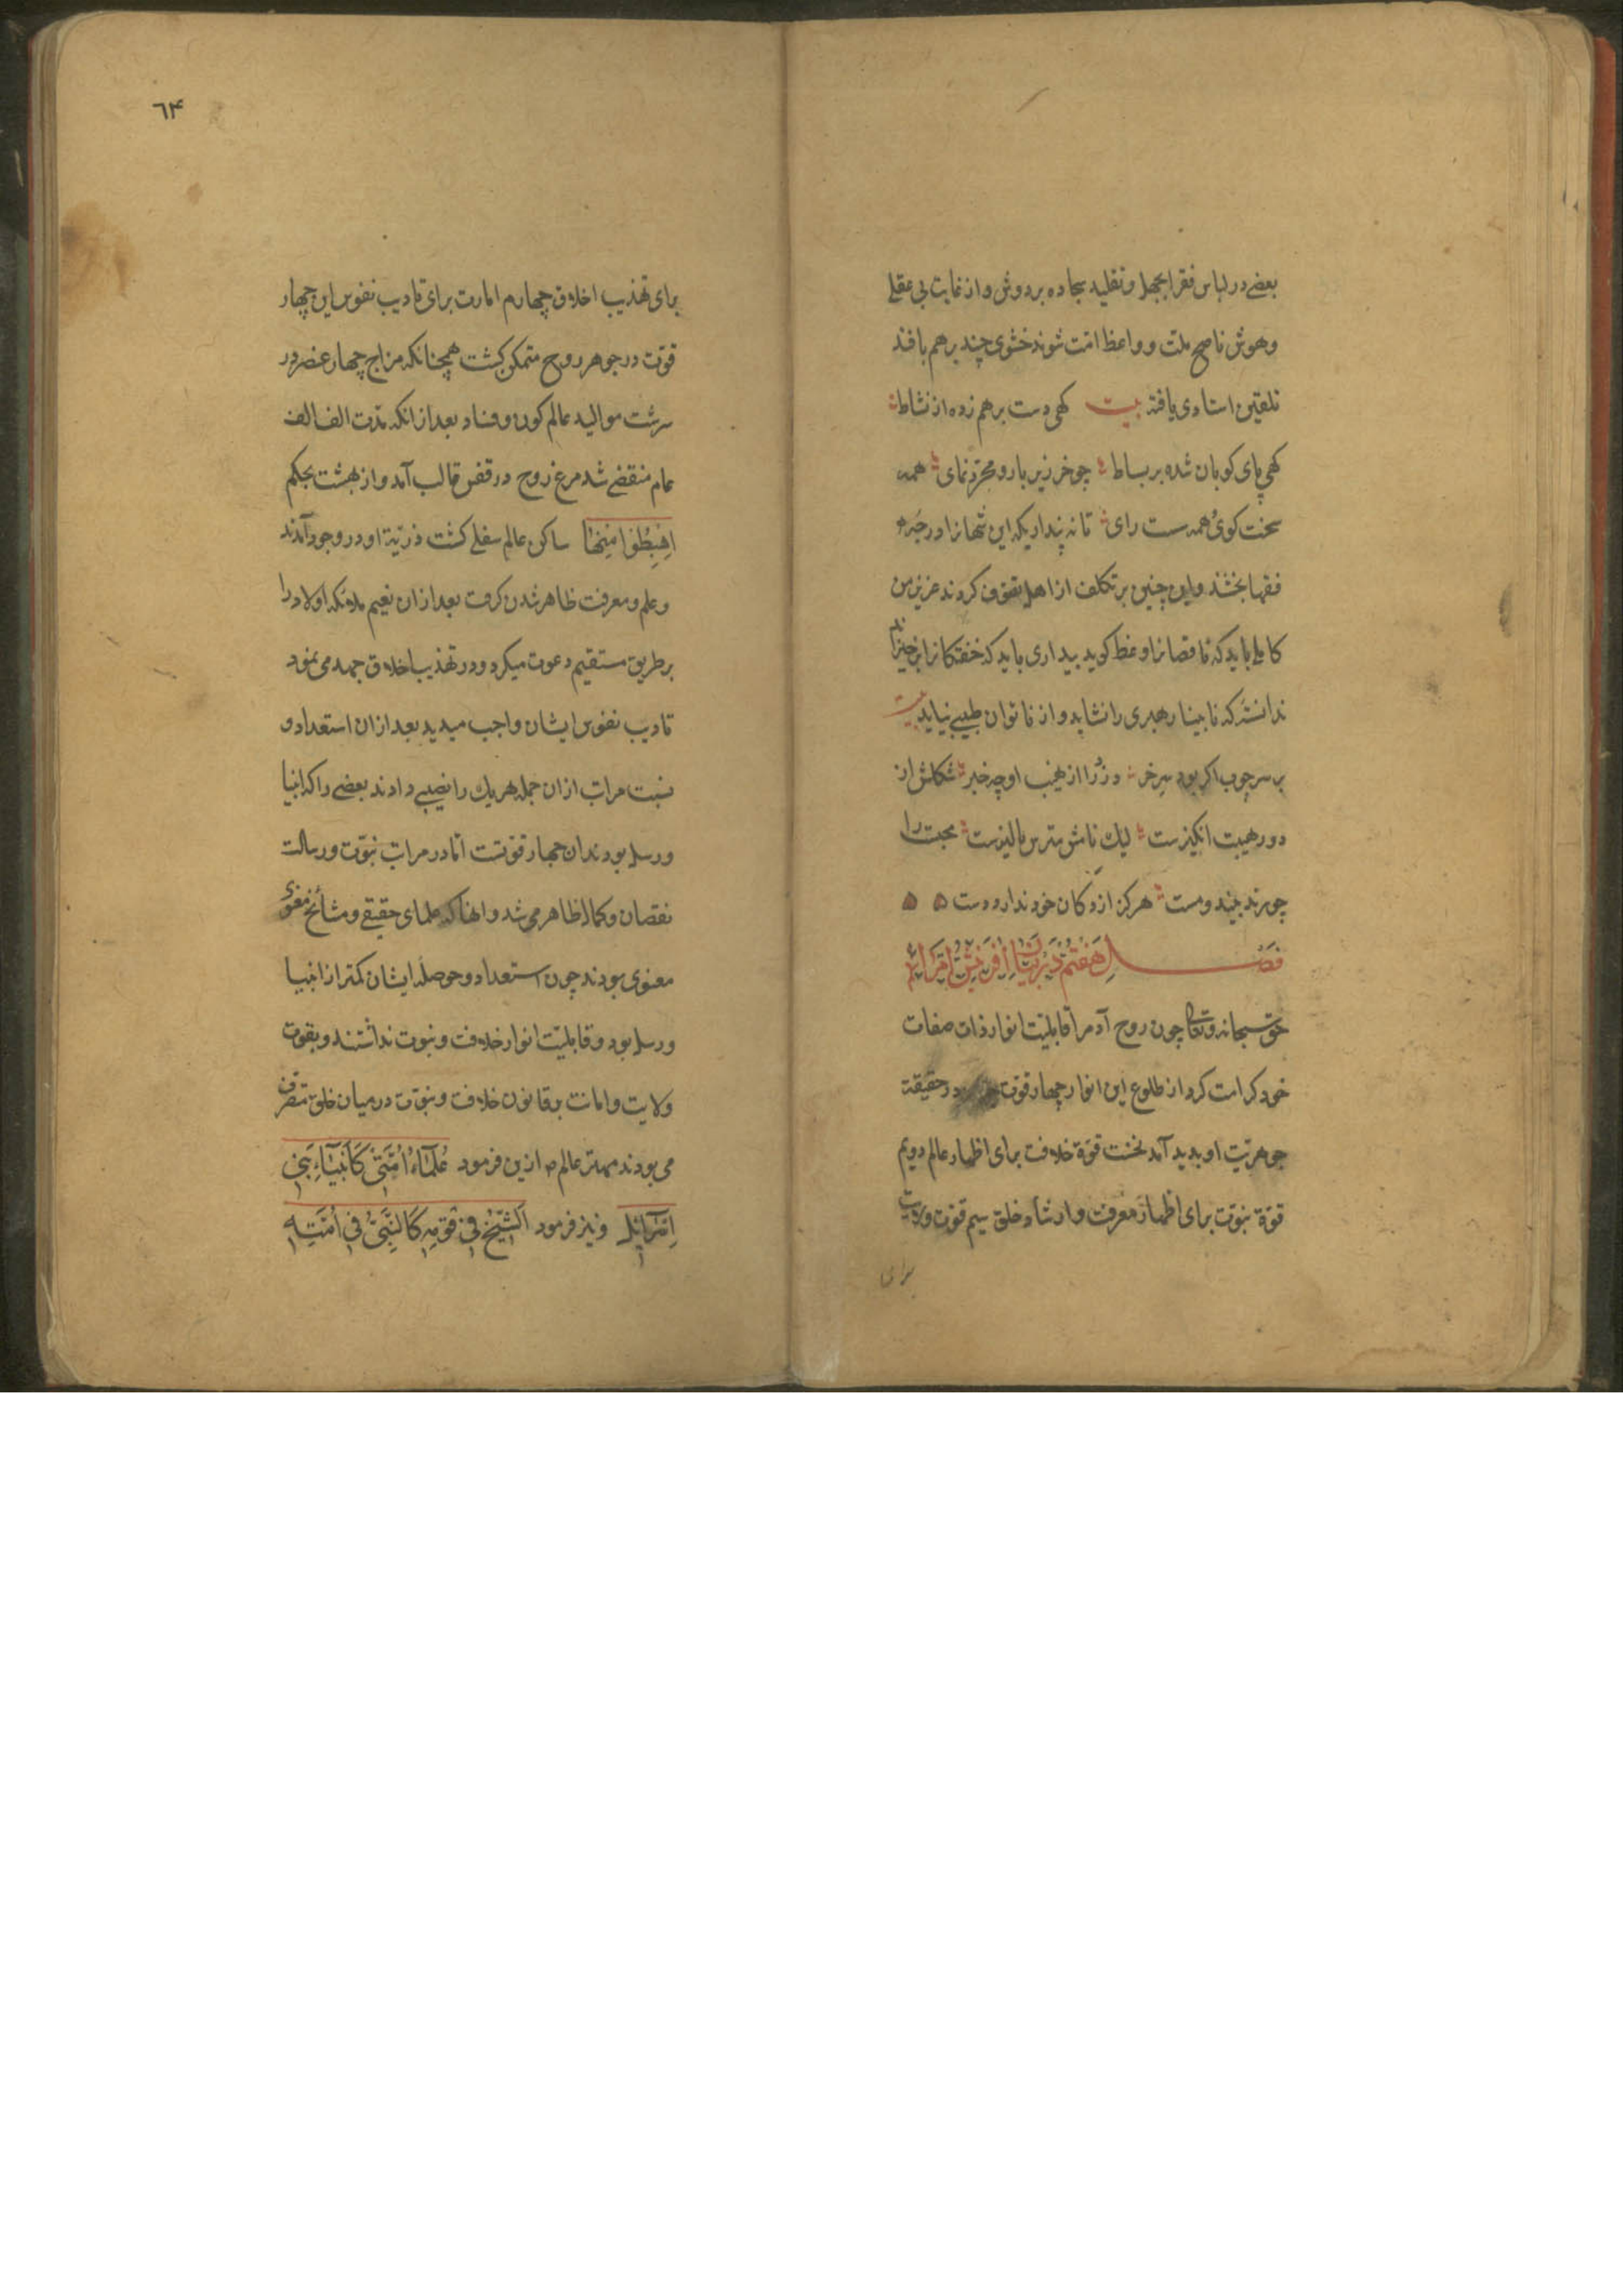 بعضے در لباس فقرا بجهل و تقلید سجاده بر دوش و از غایت بی عقلے
وهوش ناصح ملت و واعظ امت شوند خشوی چند برهم بافند
تلقین استادی یافته بیت کهی دست برهم زده از نشاط
کهی پای کوبان شده بر بساط چو خر زیر بار و مجرّد نمای همه
سخت کوی همه سست رای تا نه پنداریکه این شهانرا در جَبره
فقها بخشند واین چنین بر تکلف از اهل تصوف کروند عزیز من
کاملے باید که ناقصانرا وعظ کوید بیداری باید که خفتکانرا برخیزاند
ندانستۀ که نابینا رهبری را نشاید و از ناتوان طبیبے نیاید بیت
بر سر چوب اکر بود سر خر دزد را از نهیب او چه خبر شکلش از
دور هیبت انکیزست لیک نامش مترس پالیزست محبت را
چو رند بیند و مست هرکز از دکان خود ندارد دست ه ه
فصل هفتم در بیان آفرینش
حق سبحانه وتعالی چون روح آدم را قابلیّت انوار ذات صفات
خود کرامت کرد از طلوع این انوار چهار قوّت در حقیقة
جوهریّت او بدید آمد نخست قوّة خلافت برای اظهار عالم دویم
قوّة نبوّت برای اظهار معرفت وارشاد خلق سیم قوّت ولایت
برای
٦۴
برای تهذیب اخلاق چهارم امارت برای تادیب نفوس این چهار
قوّت در جوهر روح متمکن کشت همچنانکه مزاج چهار عنصر در
سرشت موالید عالم کون و فساد بعد از انکه مدت الف الف
عام منقضے شد مرغ روح در قفس قالب آمد و از بهشت بحکم
اِهْبِطُوا مِنْهَا ساکن عالم سفلے کشت ذرّیّة او در وجود آمدند
وعلم ومعرفت ظاهر شدن کرفت بعد ازان نعیم ملائکه اولاد را
بر طریق مستقیم دعوت میکرد و در تهذیب اخلاق جهد می نمود
تادیب نفوس ایشان واجب میدید بعد ازان استعداد و
نسبت مراتب ازان جمله هر یك را نصیبے دادند بعضے را که انبیا
ورسل بودند ان چهار قوّتست امّا در مراتب نبوّت و رسالت
نقصان و کمال ظاهر می شد و انها که علمای حقیقے و مشائخ معنوی
معنوی بودند چون استعداد و حوصله ایشان کمتر از انبیا
ورسل بود و قابلیّت انوار خلافت و نبوت نداشتند و بقوت
ولایت وامانت بقانون خلافت و نبوّت در میان خلق متصرف
می بودند مهتر عالم ص ازین فرمود عُلَمَآءُ اُمَّتِیْ کَاَنْبِیَآءِ بَنِیْ
اِسْرَآئِیْلَ و نیز فرمود اَلشَّیْخُ فِیْ قَوْمِهٖ کَالنَّبِیِّ فِیْ اُمَّتِهٖ